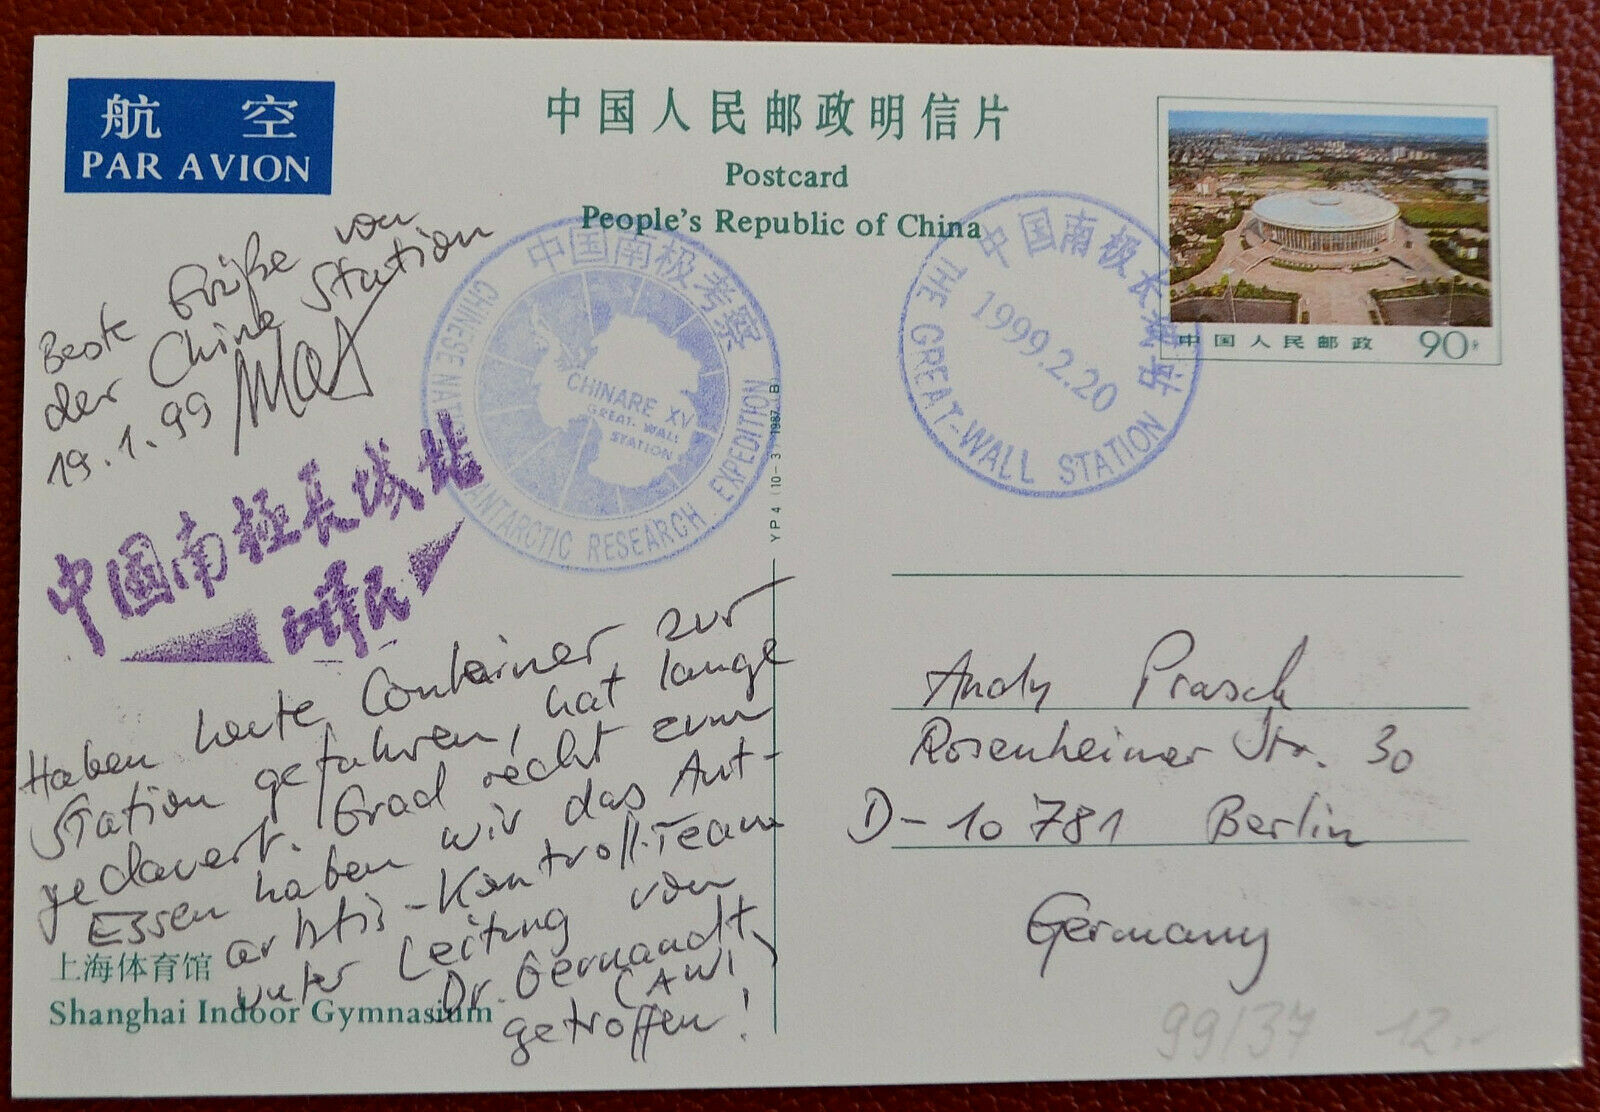 航 空
PAR AVION
中国人民邮政明信片
Postcard
People's Republic of China
中国人民邮政 90分
中国南极考察
CHINESE NATIONAL ANTARCTIC RESEARCH EXPEDITION
CHINARE XV
GREAT WALL
STATION
中国南极长城站
1999.2.20
THE GREAT-WALL STATION
Beste Grüße von
der China Station
19.1.99
中国南極長城站
YP4 (10-3) 1987 B
Haben heute Container zur
Station gefahren, hat lange
gedauert. Grad recht zum
Essen haben wir das Ant-
arktis-Kontroll-Team
unter Leitung von
Dr. Gernandt,
(AWI)
getroffen!
上海体育馆
Shanghai Indoor Gymnasium
Andy Prasch
Rosenheimer Str. 30
D-10781 Berlin
Germany
99/37 12,-